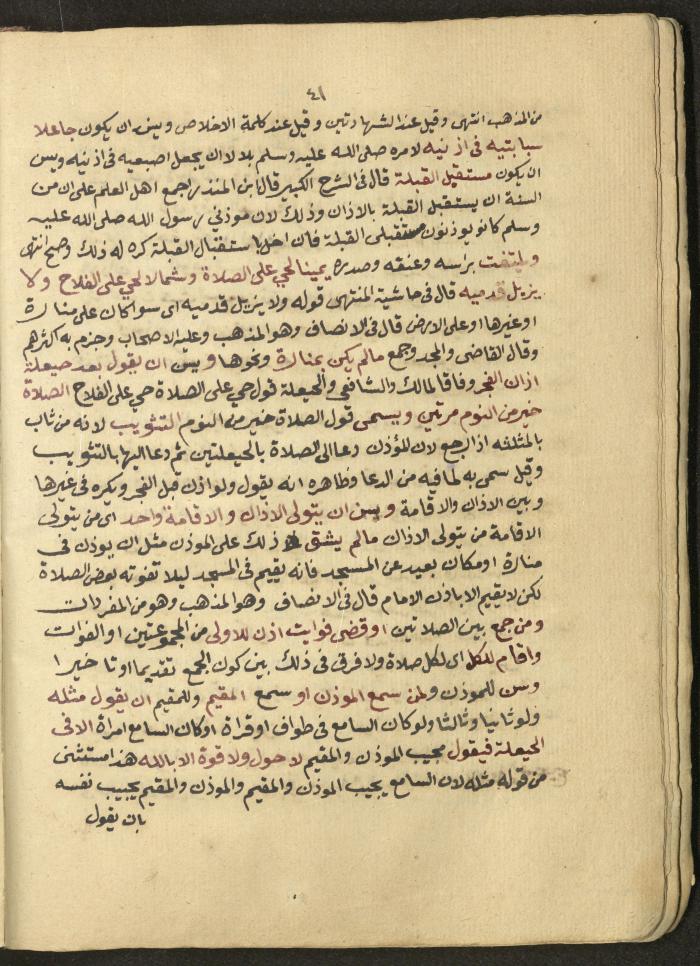 ٤١
من المذهب انتهى وقيل عند الشهادتين وقيل عند كلمة الاخلاص ويسن ان يكون جاعلا
سبابتيه في اذنيه لامره صلى الله عليه وسلم بلالا ان يجعل اصبعيه في اذنيه ويسن
ان يكون مستقبل القبلة قال في الشرح الكبير قال ابن المنذر اجمع اهل العلم على ان من
السنة ان يستقبل القبلة بالاذان وذلك لان موذني رسول الله صلى الله عليه
وسلم كانو يوذنون مستقبلي القبلة فان اخل باستقبال القبلة كره له ذلك وصح انتهى
ويلتفت براسه وعنقه وصدره يمينا لحي على الصلاة وشمالا لحي على الفلاح ولا
يزيل قدميه قال في حاشية المنتهى قوله ولا يزيل قدميه اى سوا كان على منارة
او غيرها او على الارض قال في الانصاف وهو المذهب وعليه الاصحاب وجزم به اكثرهم
وقال القاضي والمجد وجمع مالم يكن بمنارة ونحوها ويسن ان يقول بعد حيعلة
اذان الفجر وفاقا لمالك والشافعي والحيعلة قول حي على الصلاة حي على الفلاح الصلاة
خير من النوم مرتين ويسمى قول الصلاة خير من النوم التثويب لانه من ثاب
بالمثلثه اذا رجع لان المؤذن دعا الى الصلاة بالحيعلتين ثم دعا اليها بالتثويب
وقيل سمى به لما فيه من الدعا وظاهره انه يقول ولو اذن قبل الفجر ويكره في غيرها
وبين الاذان والاقامة ويسن ان يتولى الاذان والاقامة واحد اى من يتولى
الاقامة من يتولى الاذان مالم يشق ذلك على الموذن مثل ان يوذن في
منارة او مكان بعيد عن المسجد فانه يقيم في المسجد ليلا تفوته بعض الصلاة
لكن لا يقيم الا باذن الامام قال في الانصاف وهو المذهب وهو من المفردات
ومن جمع بين الصلاتين او قضى فوايت اذن للاولى من المجموعتين او الفوات
واقام للكل اى لكل صلاة ولا فرق في ذلك بين كون الجمع تقديما او تاخيرا
وسن للموذن ولمن سمع الموذن او سمع المقيم وللمقيم ان يقول مثله
ولو ثانيا وثالثا ولو كان السامع في طواف او قراة او كان السامع امراة الا في
الحيعلة فيقول مجيب الموذن والمقيم لا حول ولا قوة الا بالله هذا مستثنى
من قوله مثله لان السامع يجيب الموذن والمقيم والموذن والمقيم يجيب نفسه
بان يقول